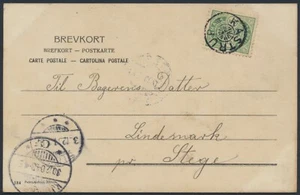 BREVKORT
BREFKORT – POSTKARTE
CARTE POSTALE – CARTOLINA POSTALE
KASTRUP
Til Bagerens Datter
Lindemark
pr. Stege